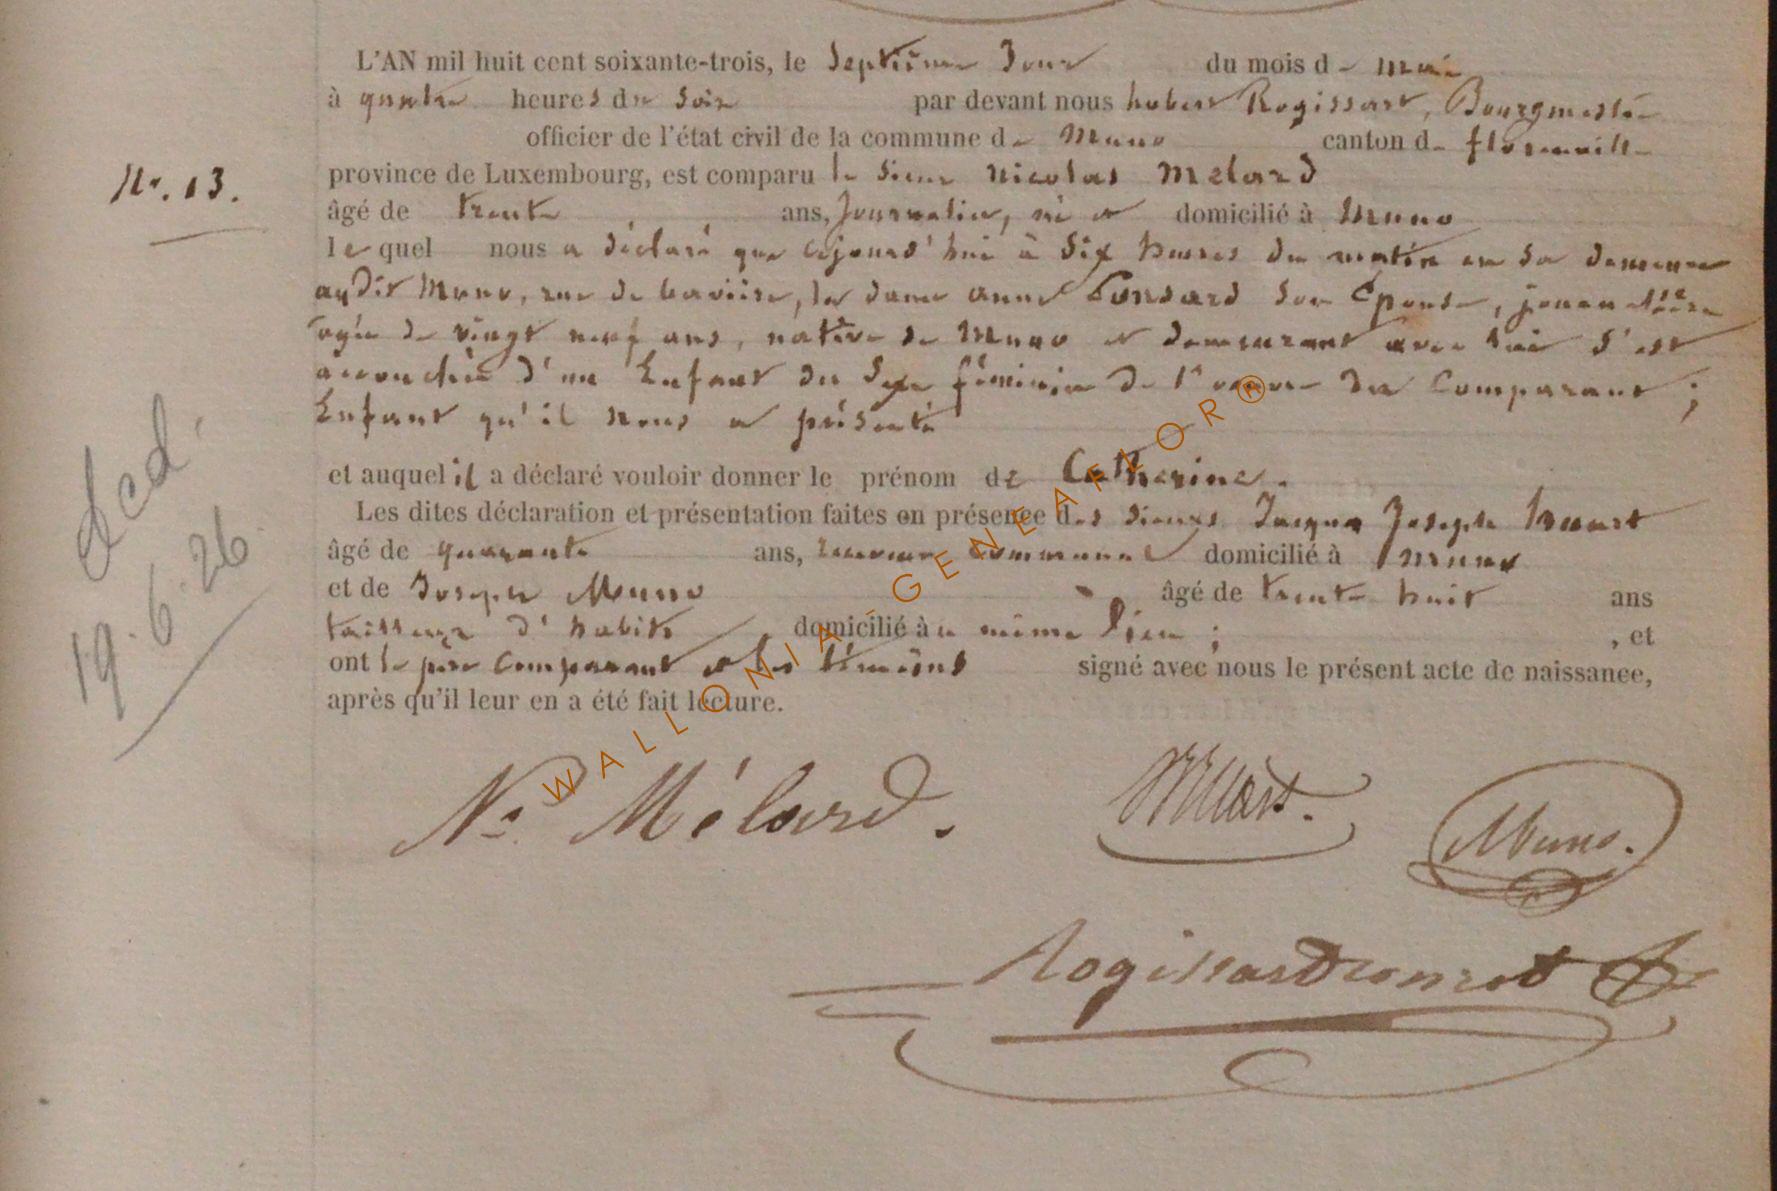 L'AN mil huit cent soixante-trois, le Septième Jour du mois de mai
à quatre heures du soir par devant nous hubert Rogissart, Bourgmestre
officier de l'état civil de la commune de Muno canton de florenville
N°. 13.
province de Luxembourg, est comparu le Sieur Nicolas Melard
âgé de trente ans, Journalier, né et domicilié à Muno
lequel nous a déclaré que cejourd'hui à Six heures du matin en sa demeure
audit Muno, rue de bavière, la dame anne Ponsard son Epouse, journalière
agée de vingt neuf ans, native de Muno et demeurant avec lui s'est
accouchée d'un Enfant du Sexe féminin de l'œuvre du Comparant ;
Enfant qu'il nous a présenté
et auquel il a déclaré vouloir donner le prénom de Catherine.
Les dites déclaration et présentation faites en présence des sieurs Jacques Joseph huart
âgé de quarante ans, receveur Communal domicilié à Muno
et de Joseph Muno âgé de trente huit ans
tailleur d'habits, domicilié à même lieu ; , et
ont le père Comparant et les témoins signé avec nous le présent acte de naissance,
après qu'il leur en a été fait lecture.
Déd.
19.6.26
Ns Mélard. Muno.
WALLONIA-GENEAFLOR®